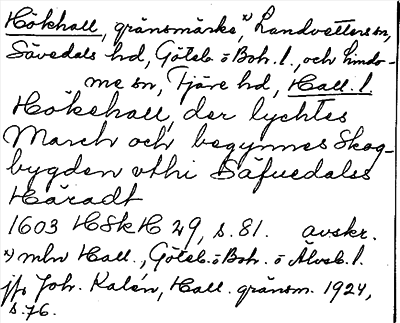 Hökhall, gränsmärke, x) Landvetters sn,
Sävedals hd, Göteb. o Boh. l., och Lindo-
me sn, Fjäre hd, Hall. l.
Hökehall, der lychtes
March och begynnes Skog-
bygden vthi Säfuedalss
Häradt
1603 HSkH 29, s. 81. avskr.
x) mln Hall., Göteb. o Boh. o Älvsb. l.
jfr Joh. Kalén, Hall. gränsm. 1924,
s. 76.